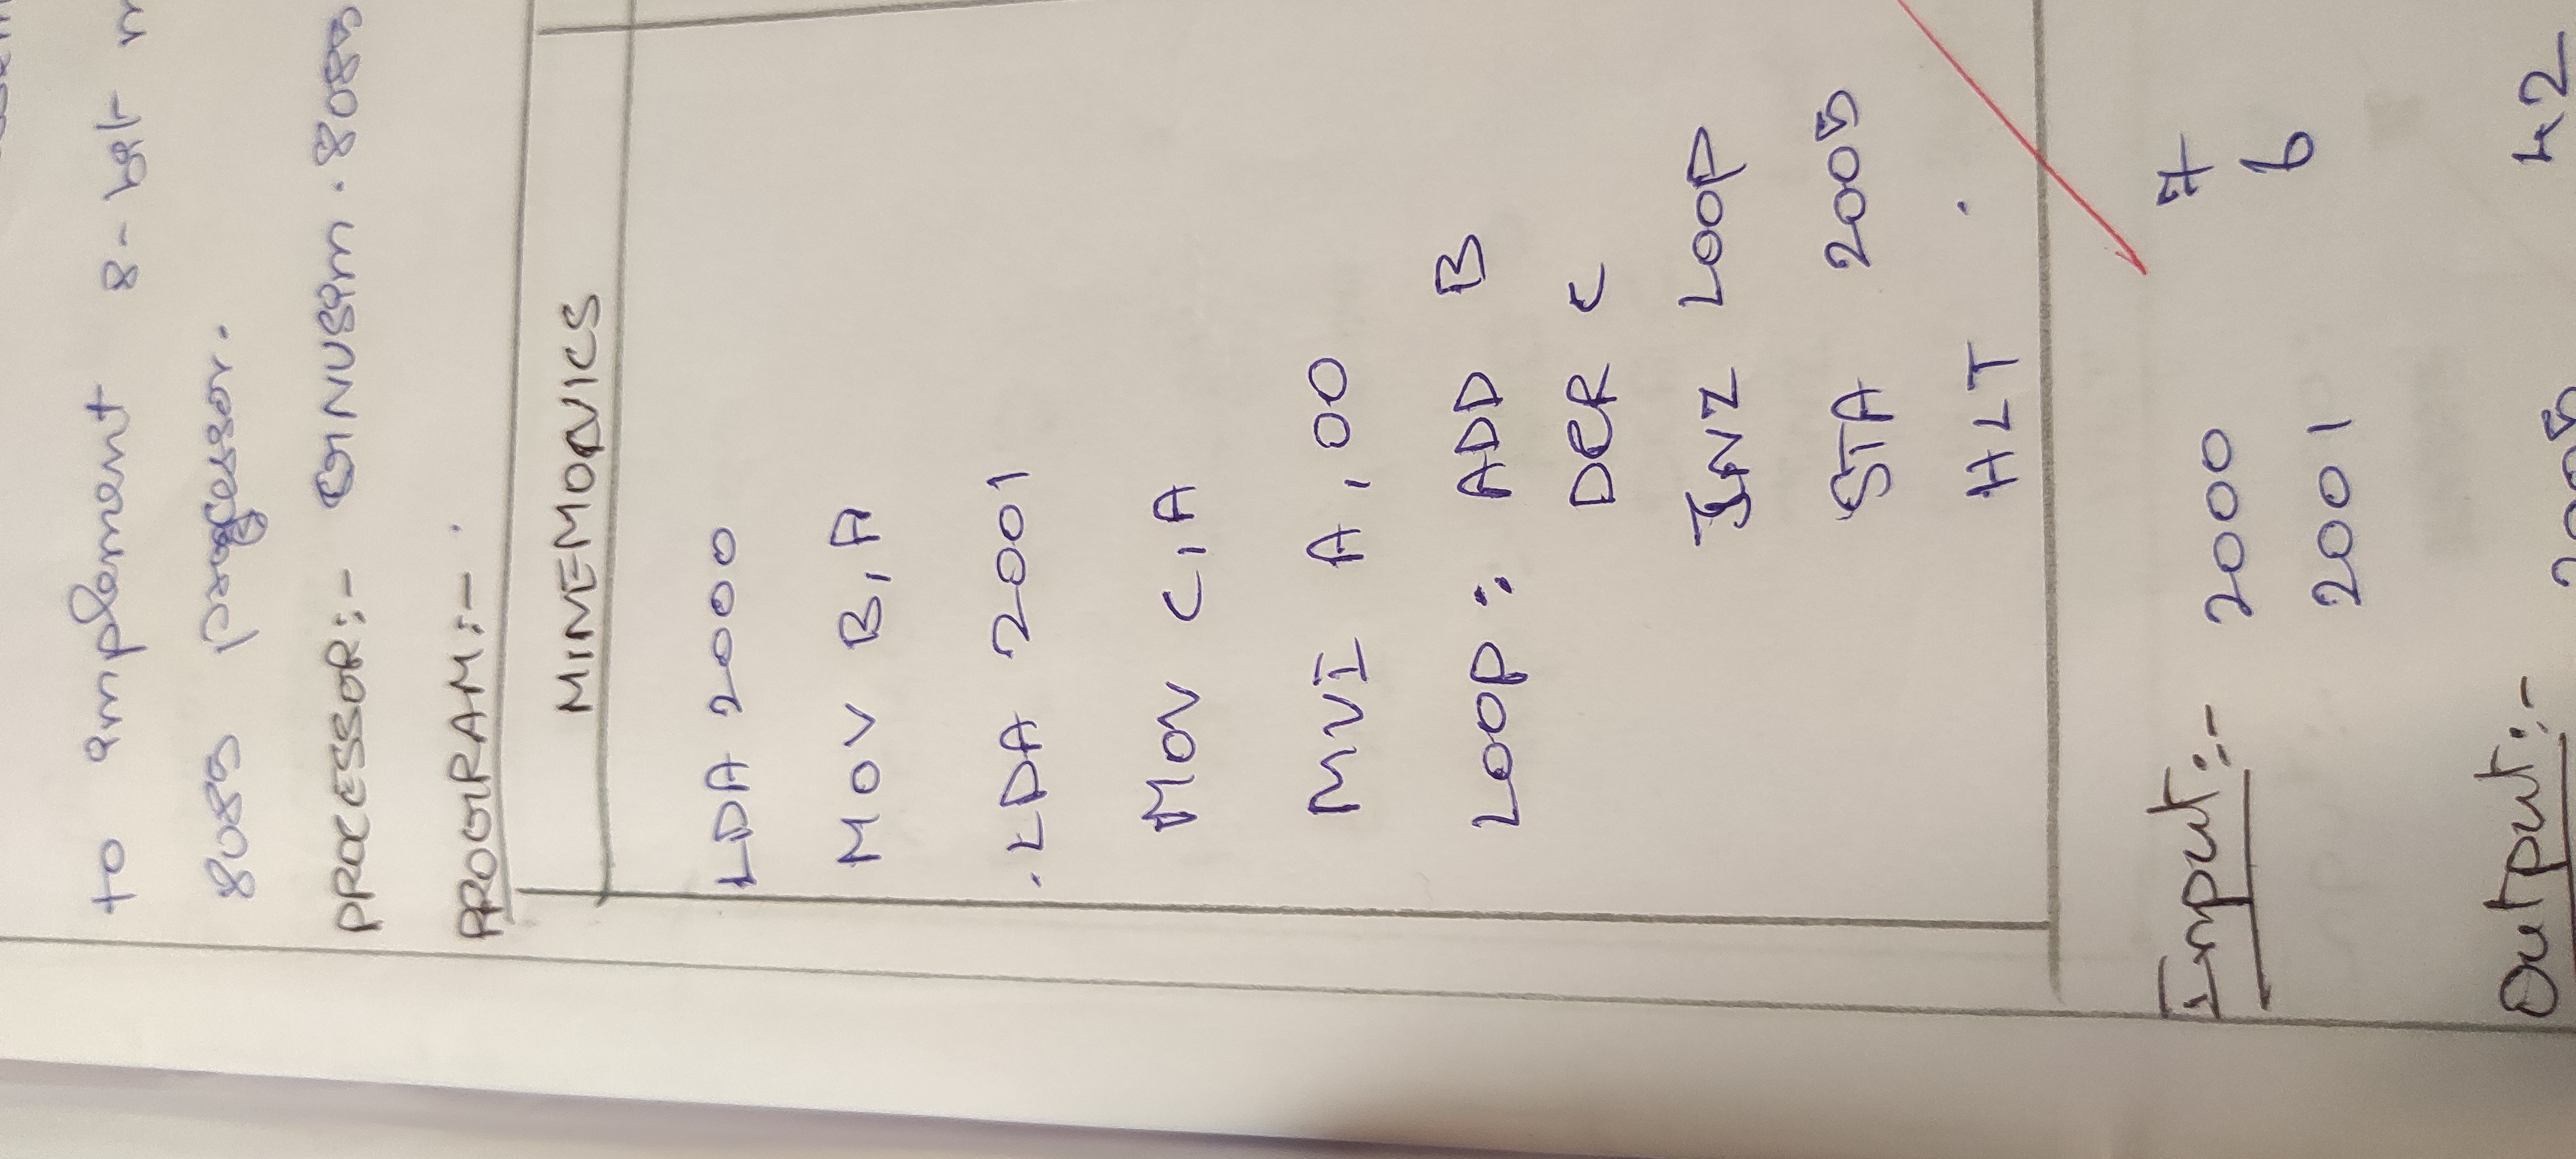 to implement 8-bit
8085 processor.
PROCESSOR:- GNUSim.8085
PROGRAM:-
MINEMONICS
LDA 2000
MOV B,A
LDA 2001
MOV C,A
MVI A,00
LOOP: ADD B
DCR C
JNZ LOOP
STA 2005
HLT
Input:- 2000 7
2001 6
Output:- 2005 42